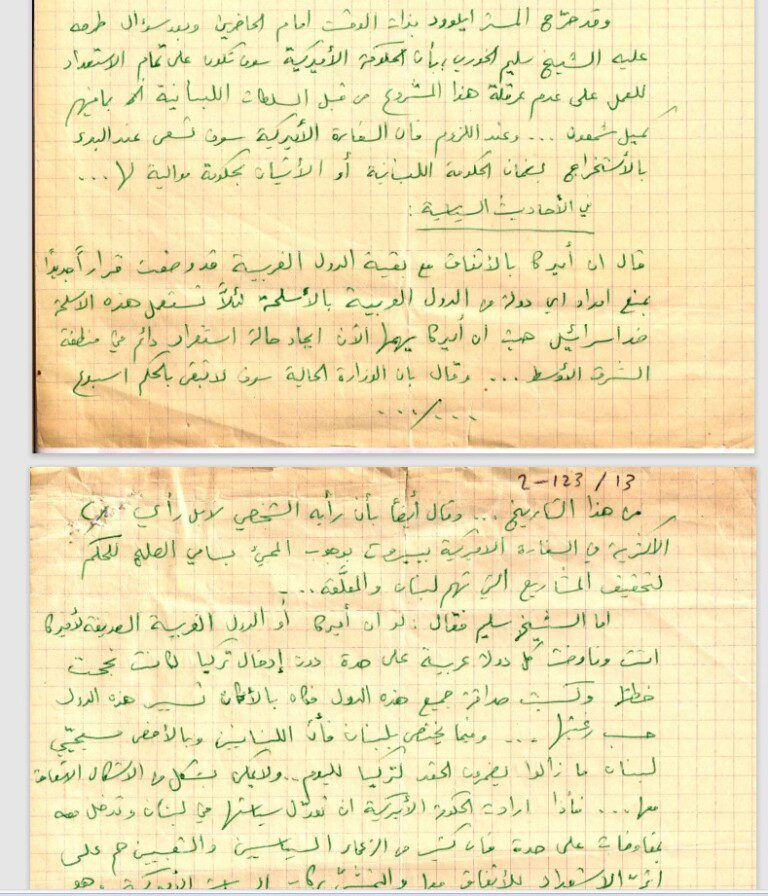 وقد صرّح المستر ايلوود بذات الوقت امام الحاضرين وبعد سؤال طرحه
عليه الشيخ سليم الخوري، بأن الحكومة الأميركية سوف تكون على تمام الاستعداد
للعمل على عدم عرقلة هذا المشروع من قبل السلطات اللبنانية بما فيهم
كميل شمعون ... وعند اللزوم فان السفارة الأميركية سوف تسعى عند البدء
بالأستخراج لضمان الحكومة اللبنانية أو الأتيان بحكومة موالية لها ...
في الأحاديث السياسية :
قال ان أميركا بالأتفاق مع بقية الدول الغربية قد وضعت قراراً جديداً
بمنع امداد اي دولة من الدول العربية بالأسلحة لئلاّ تستعمل هذه الاسلحة
ضد اسرائيل حيث ان أميركا يهمها الآن ايجاد حالة استقرار دائم في منطقة
الشرق الأوسط ... وقال بان الوزارة الحالية سوف لا تبقى بالحكم اسبوع
.../...
2-123/13
من هذا التاريخ ... وقال أيضاً بأن رأيه الشخصي لا بل رأي
الاكثرية في السفارة الاميركية ببيروت بوجوب المجيء بسامي الصلح للحكم
لتحقيق المشاريع التي تهم لبنان والمعلّقة ...
اما الشيخ سليم فقال : لو ان أميركا أو الدول الغربية الصديقة لأميركا
اتت وفاوضت كل دولة عربية على حدة دون إدخال تركيا لكانت نجحت
خطتها وكسبت صداقة جميع هذه الدول فكان بالأمكان تسيير هذه الدول
حسب رغبتها ... وفيما يختص بلبنان فأن اللبنانيين وبالأخص مسيحيّي
لبنان ما زالوا يضمرون الحقد لتركيا لليوم .. ولا يمكن بشكل من الاشكال الاتفاق
معها ... فأذا ارادت الحكومة الأميركية ان تعدّل سياستها في لبنان وتدخل معه
بمفاوضات على حدة فان كثير من الزعماء السياسيين والشعبيين هم على
الاستعداد للأتفاق معها